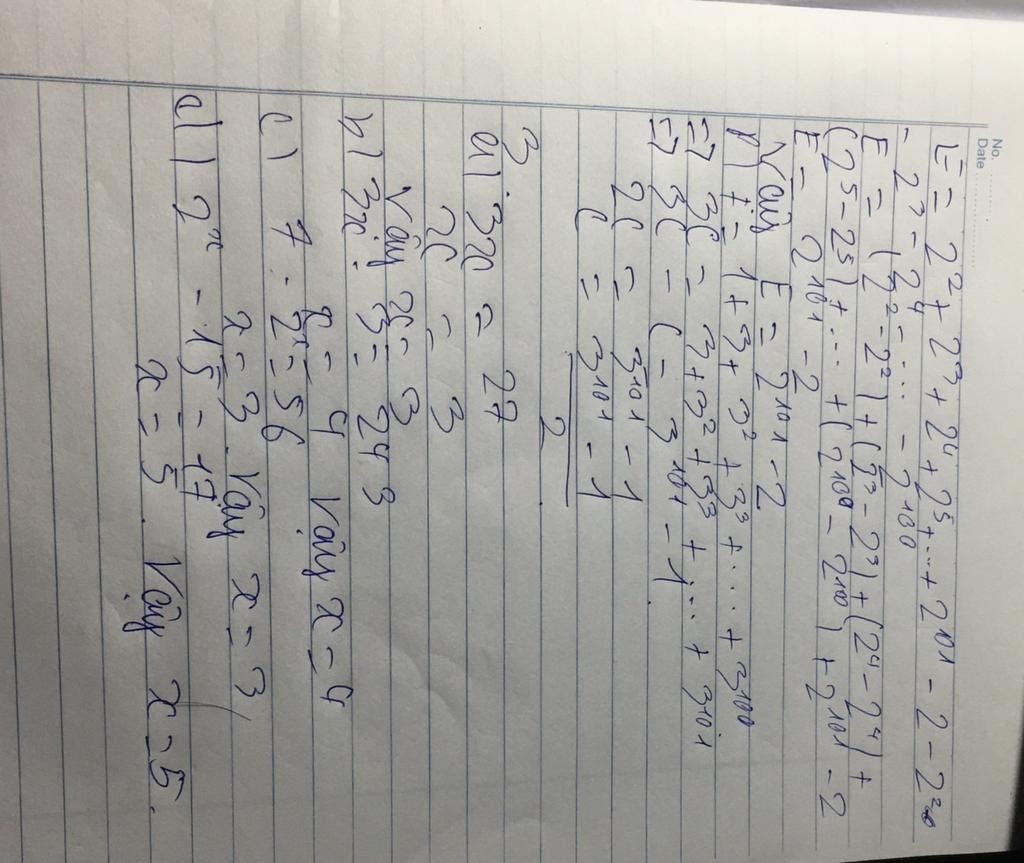 No.
Date
E = 2² + 2³ + 2⁴ + 2⁵ + ... + 2¹⁰¹ - 2 - 2²
- 2³ - 2⁴ - ... - 2¹⁰⁰
E = (2² - 2²) + (2³ - 2³) + (2⁴ - 2⁴) +
(2⁵ - 2⁵) + ... + (2¹⁰⁰ - 2¹⁰⁰) + 2¹⁰¹ - 2
E = 2¹⁰¹ - 2
Vậy E = 2¹⁰¹ - 2
= 1 + 3 + 3² + 3³ + .... + 3¹⁰⁰
=> 3C = 3 + 3² + 3³ + ... + 3¹⁰¹
=> 3C - C = 3¹⁰¹ - 1.
2C = 3¹⁰¹ - 1
C = 3¹⁰¹ - 1
2
3
a) 3x = 27
x = 3
Vậy x = 3
b) 3x . 3 = 243
x = 4 Vậy x = 4
c) 7 . 2ˣ = 56
x = 3. Vậy x = 3
d) 2ˣ - 15 = 17
x = 5. Vậy x = 5.